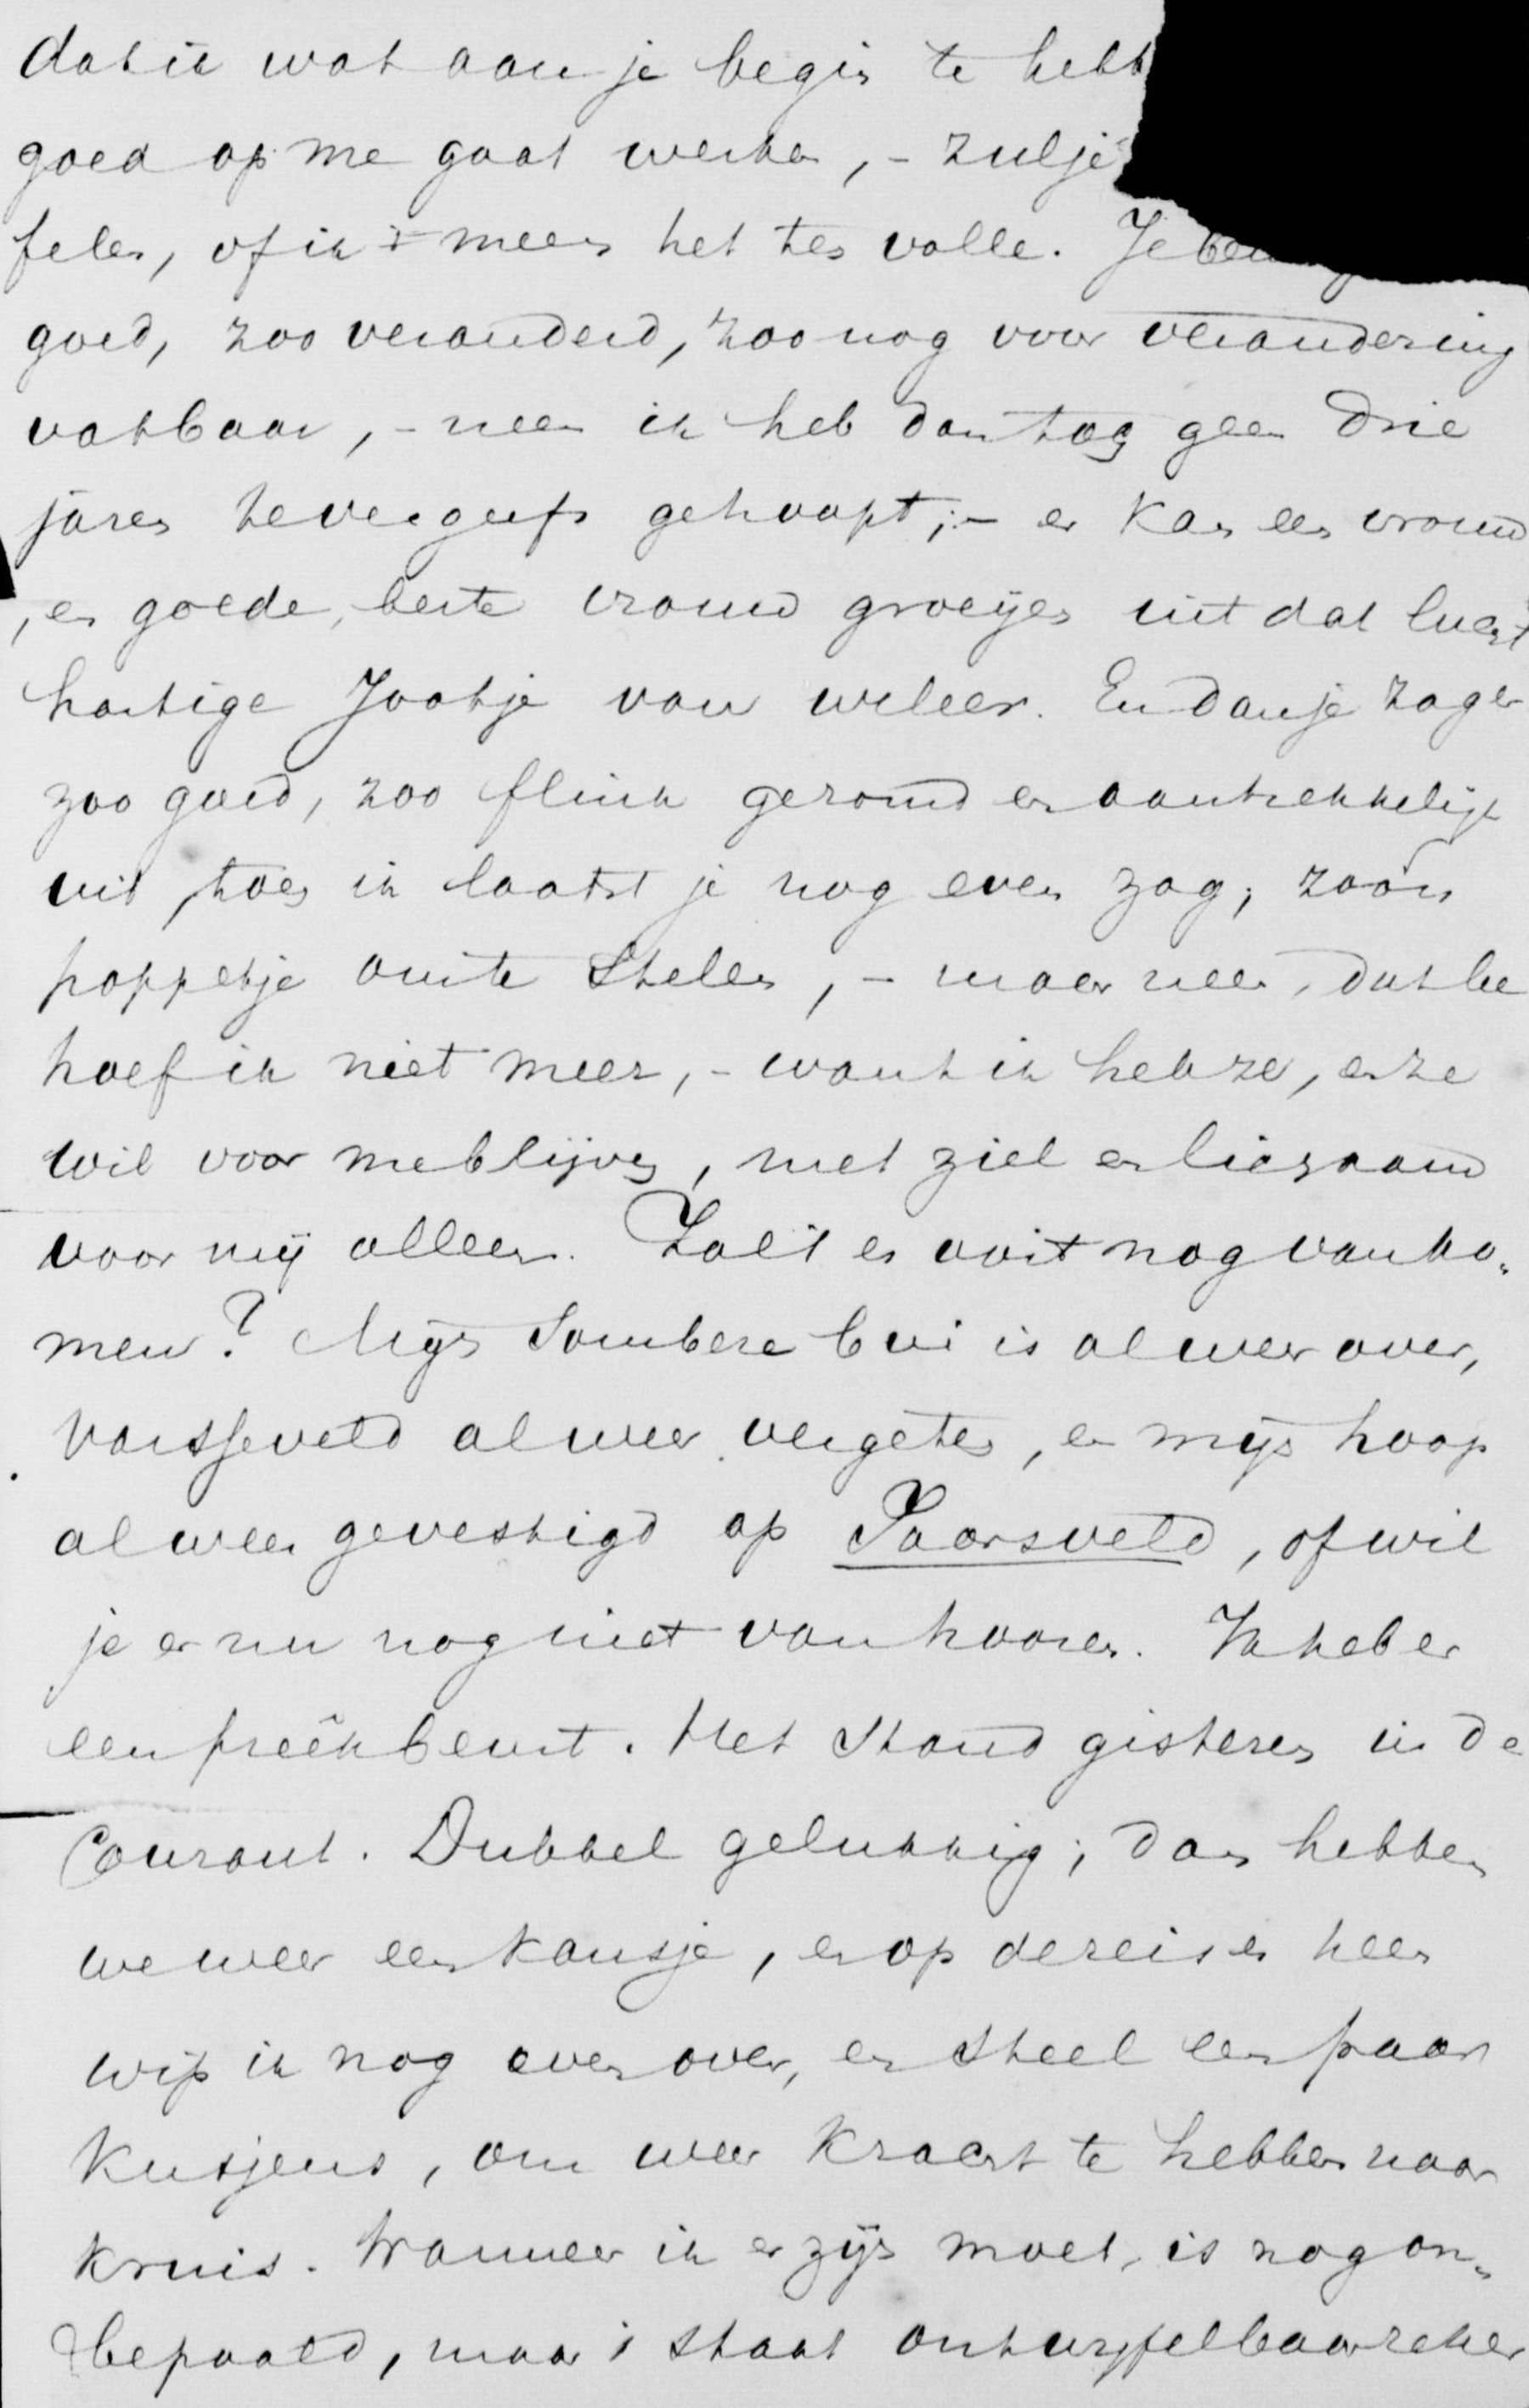 dat ik wat aan je begin te hebb
goed op me gaat werken, – zul je
felen, of ik meen het ten volle. Je ben
goed, zoo veranderd, zoo nog voor verandering
vatbaar, – neen ik heb dan tog geen drie
jaren tevergeefs gehoopt; – er kan een vrouw
, en goede, beste vrouw groeijen uit dat lugt
hartige Jootje van weleer. En dan je zag er
zoo goed, zoo flink gezond en aantrekkelijk
uit, toen ik laatst je nog even zag; zoo'n
poppetje om te stelen, – maar neen, dat be
hoef ik niet meer, – want ik heb ze, en ze
wil voor me blijven, met ziel en ligzaam
voor mij alleen. Zal 't er ooit nog van ko„
men? Mijn sombere bui is al weer over,
Varsseveld al weer vergeten, en mijn hoop
al weer gevestigd op Saarsveld, of wil
je er nu nog niet van hooren. Ik heb er
een preêkbeurt. Het stond gisteren in de
Courant. Dubbel gelukkig; dan hebben
we weer een kansje, en op de reis er heen
wip ik nog even over, en steel een paar
kusjens, om weer kracht te hebben naar
kruis. Wanneer ik er zijn moet, is nog on„
bepaald, maar 't staat ontwijfelbaar zeker